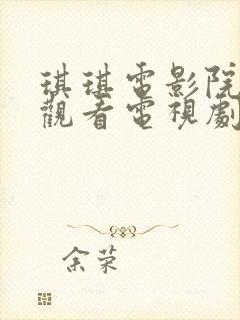 琪琪電影院
觀看電視劇
余荣